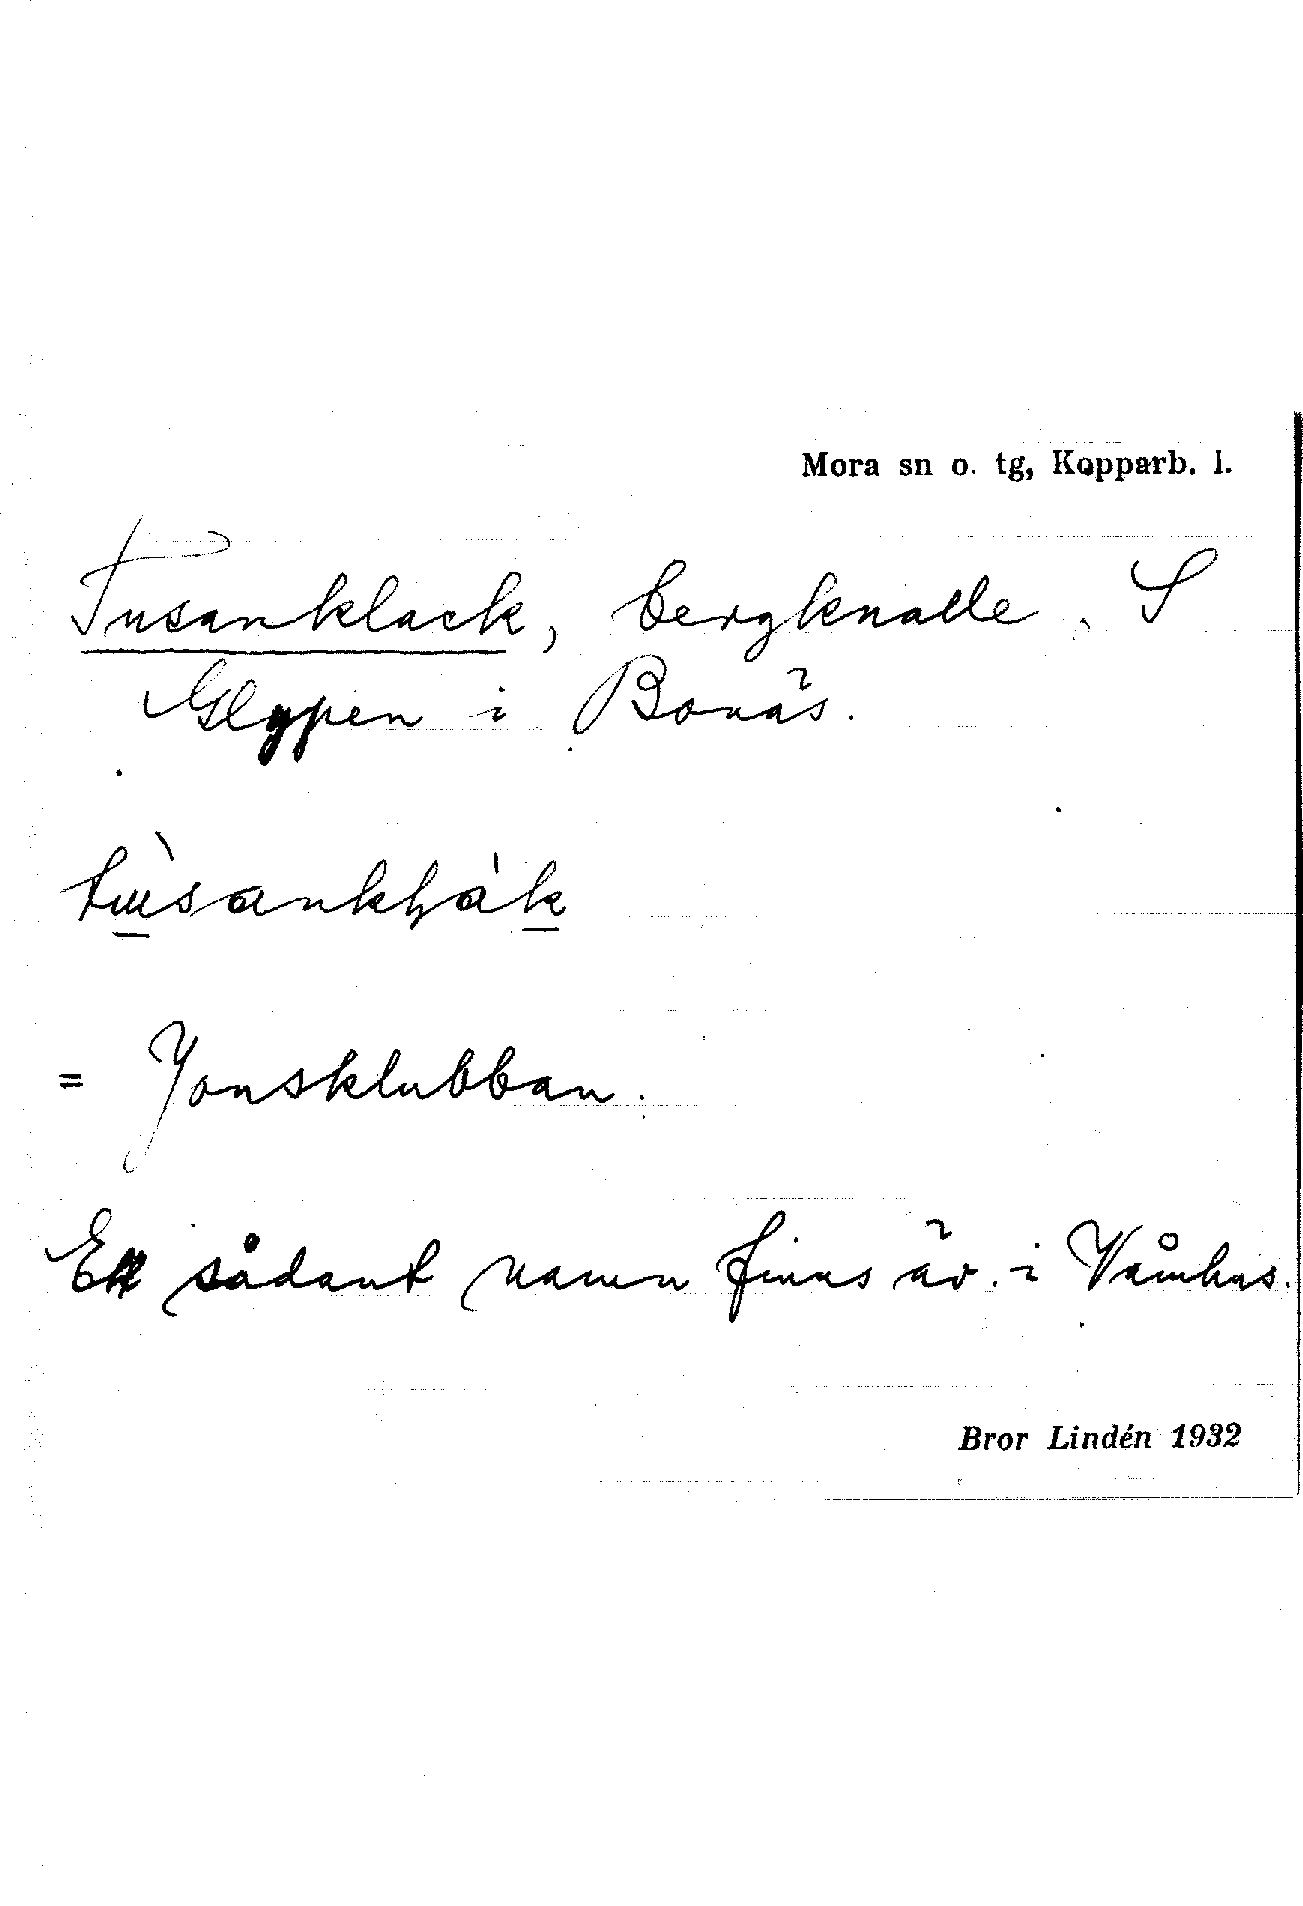 Mora sn o. tg, Kopparb. l.
Tusanklack, bergknalle, S
Glypen i Bonäs.
tùsankḷák
= Jonsklubban.
Ett sådant namn finns äv. i Våmhus.
Bror Lindén 1932